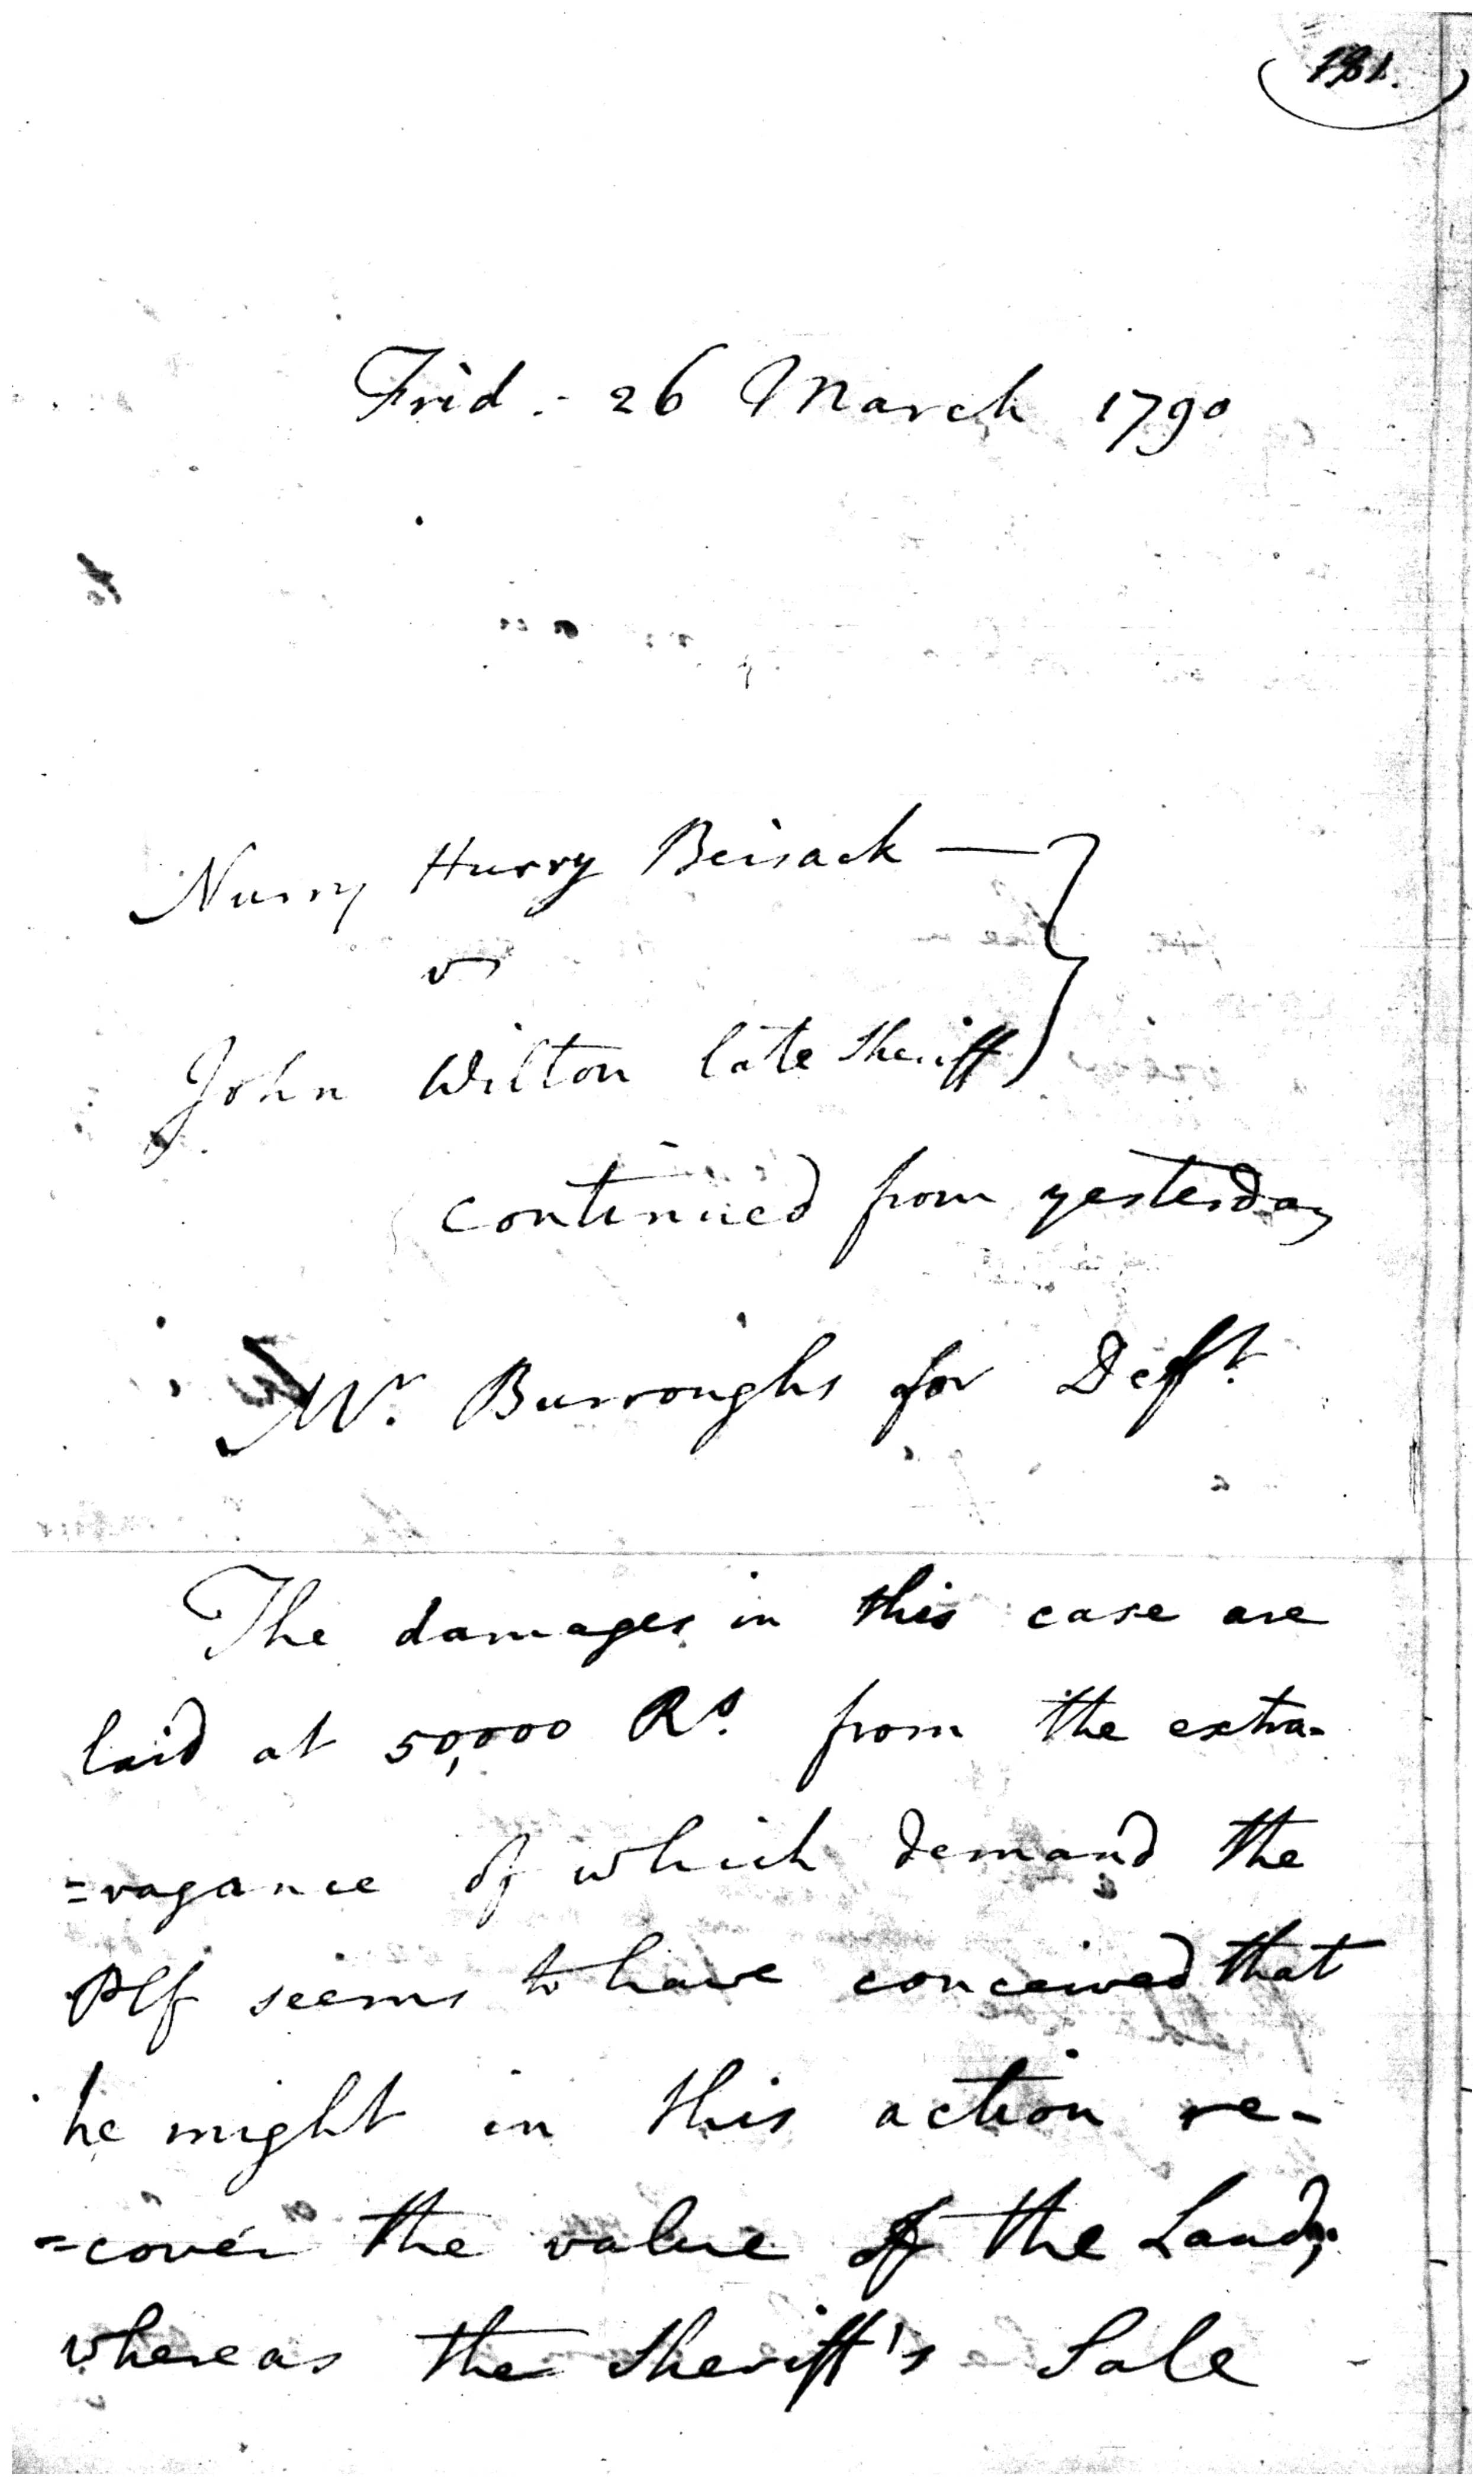 (181.)
Frid. - 26 March 1790
Nurry Hurry Beisack —
vs
John Wilton late Sheriff
continued from yesterday
Mr. Burroughs for Deft.
The damages in this case are
laid at 50,000 Rs. from the extra-
=vagance of which demand the
Plf seems to have conceived that
he might in this action re-
=cover the value of the Land;
whereas the Sheriff's Sale